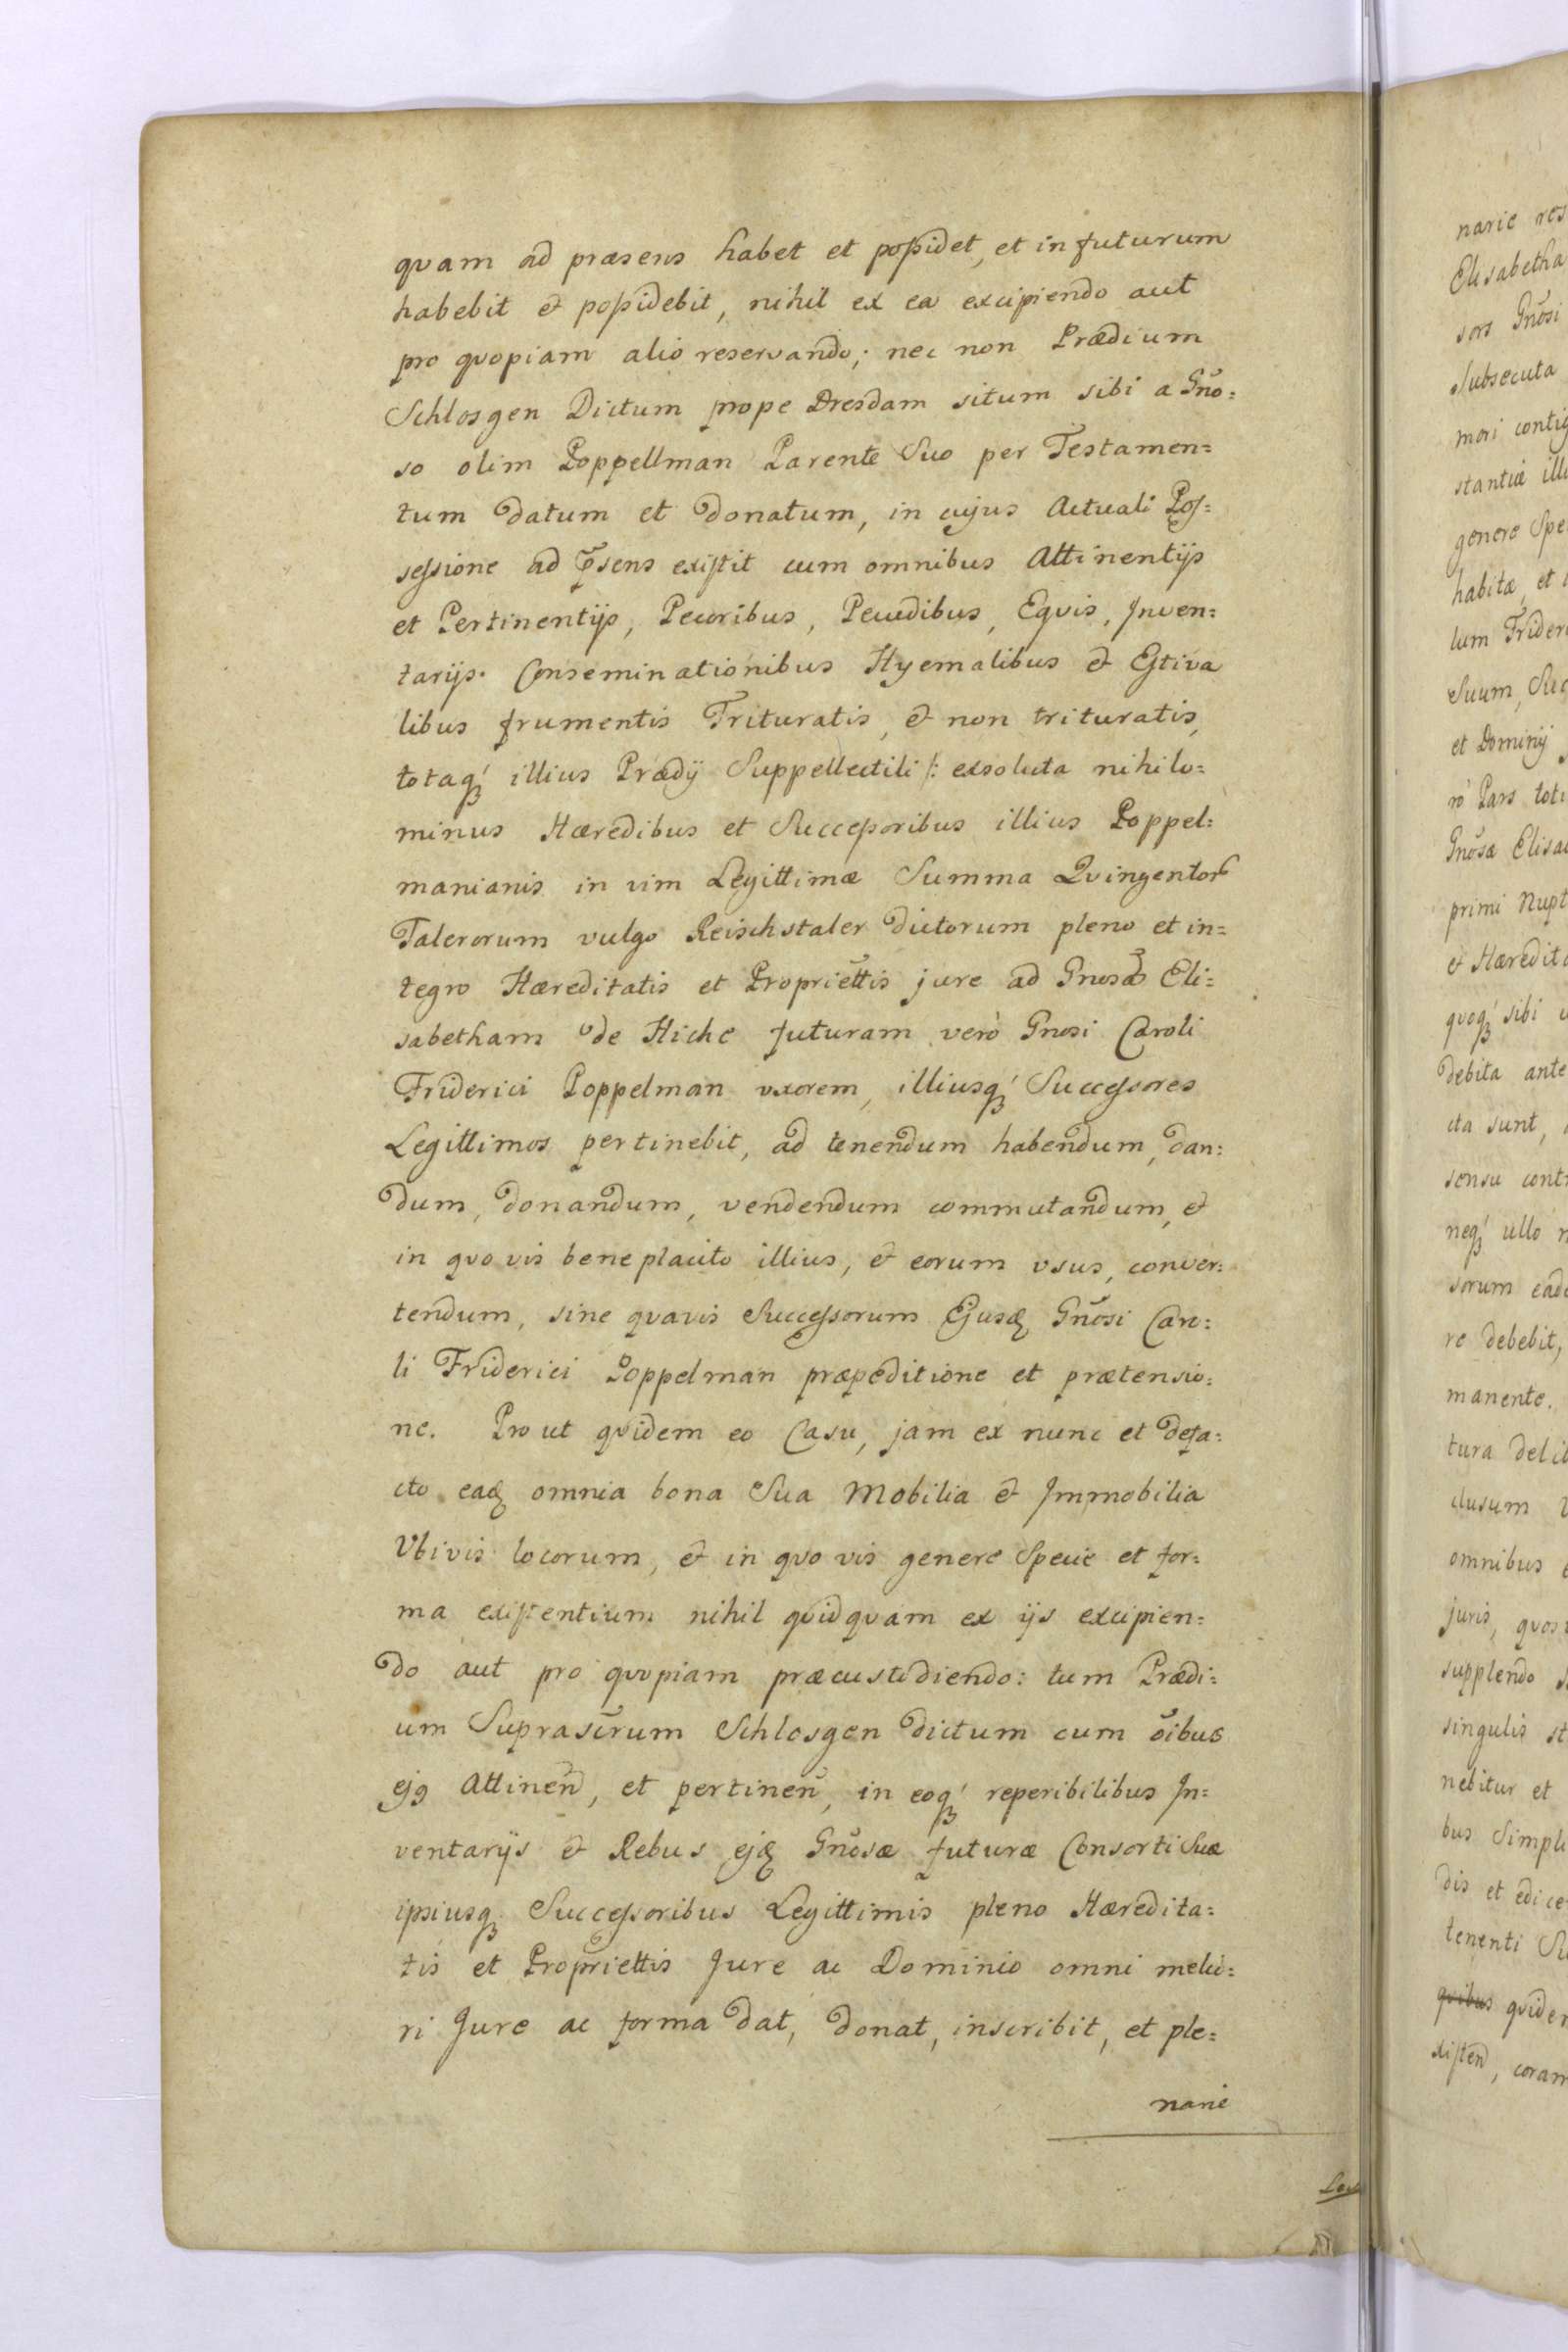 quam ad præsens habet et possidet, et in futurum
habebit et possidebit, nihil ex ea excipiendo aut
pro quopiam alio reservando; nec non Prædium
Schlosgen Dictum prope Dresdam situm sibi a Gño=
so olim Poppellman Parente Suo per Testamen=
tum datum et donatum, in cujus Actuali Pos=
sessione ad p̃sens existit cum omnibus Attinentijs
et Pertinentijs, Pecoribus, Pecudibus, Equis, Inven=
tarijs. Conseminationibus Hyemalibus et Estiva
libus frumentis Trituratis, et non trituratis,
totaq́ꝫ illius Prædij Suppellectili /: exsoluta nihilo=
minus Hæredibus et Successoribus illius Poppel=
manianis in vim Legittimæ Summa Quingentorꝭ
Talerorum vulgo Reischstaler dictorum pleno et in=
tegro Hæreditatis et Propriettis jure ad Gnosã Eli=
sabetham de Hiche futuram verò Gnosi Caroli
Friderici Poppelman uxorem, illiusq́ꝫ Successores
Legittimos pertinebit, ad tenendum habendum, dan=
dum, donandum, vendendum commutandum, et
in quo vis beneplacito illius, et eorum usus, conver=
tendum, sine quavis Successorum Ejusdꝫ Gnõsi Caro=
li Friderici Poppelman præpeditione et prætensio=
ne. Pro ut quidem eo Casu, jam ex nunc et defa=
cto eadꝫ omnia bona Sua Mobilia et Immobilia
Vbivis locorum, et in quo vis genere Specie et for=
ma existentium nihil quidquam ex ijs excipien=
do aut pro quopiam præcustodiendo: tum Prædi=
um Suprascr̃um Schlosgen dictum cum õibus
ejꝰ Attineñ, et pertineñ, in eoq́ꝫ reperibilibus In=
ventarijs et Rebus ejdꝫ Gnõsæ futuræ Consorti Suæ
ipsiusqꝫ Successoribus Legittimis pleno Hæredita=
tis et Propriettis Jure ac Dominio omni melio=
ri Jure ac forma dat, donat, inscribit, et ple=
narie
narie res
Elisabetha
sors Gnõsi
Subsecuta
mori contig
stantiæ ill
genere Spe
habitæ, et
lum Frider
Suum, Suc
et Dominij
rò Pars tot
Gnõsa Elisa
primi Nupt
et Hæredit
quoq́ꝫ sibi
debita ante
cta sunt,
sensu cont
neq́ꝫ ullo
sorum ead
re debebit,
manente.
tura deli
clusum
omnibus
juris, quos
supplendo
singulis st
nebitur et
bus Simpl
dis et edice
tenenti Su
quibus quide
xisteñ, coram